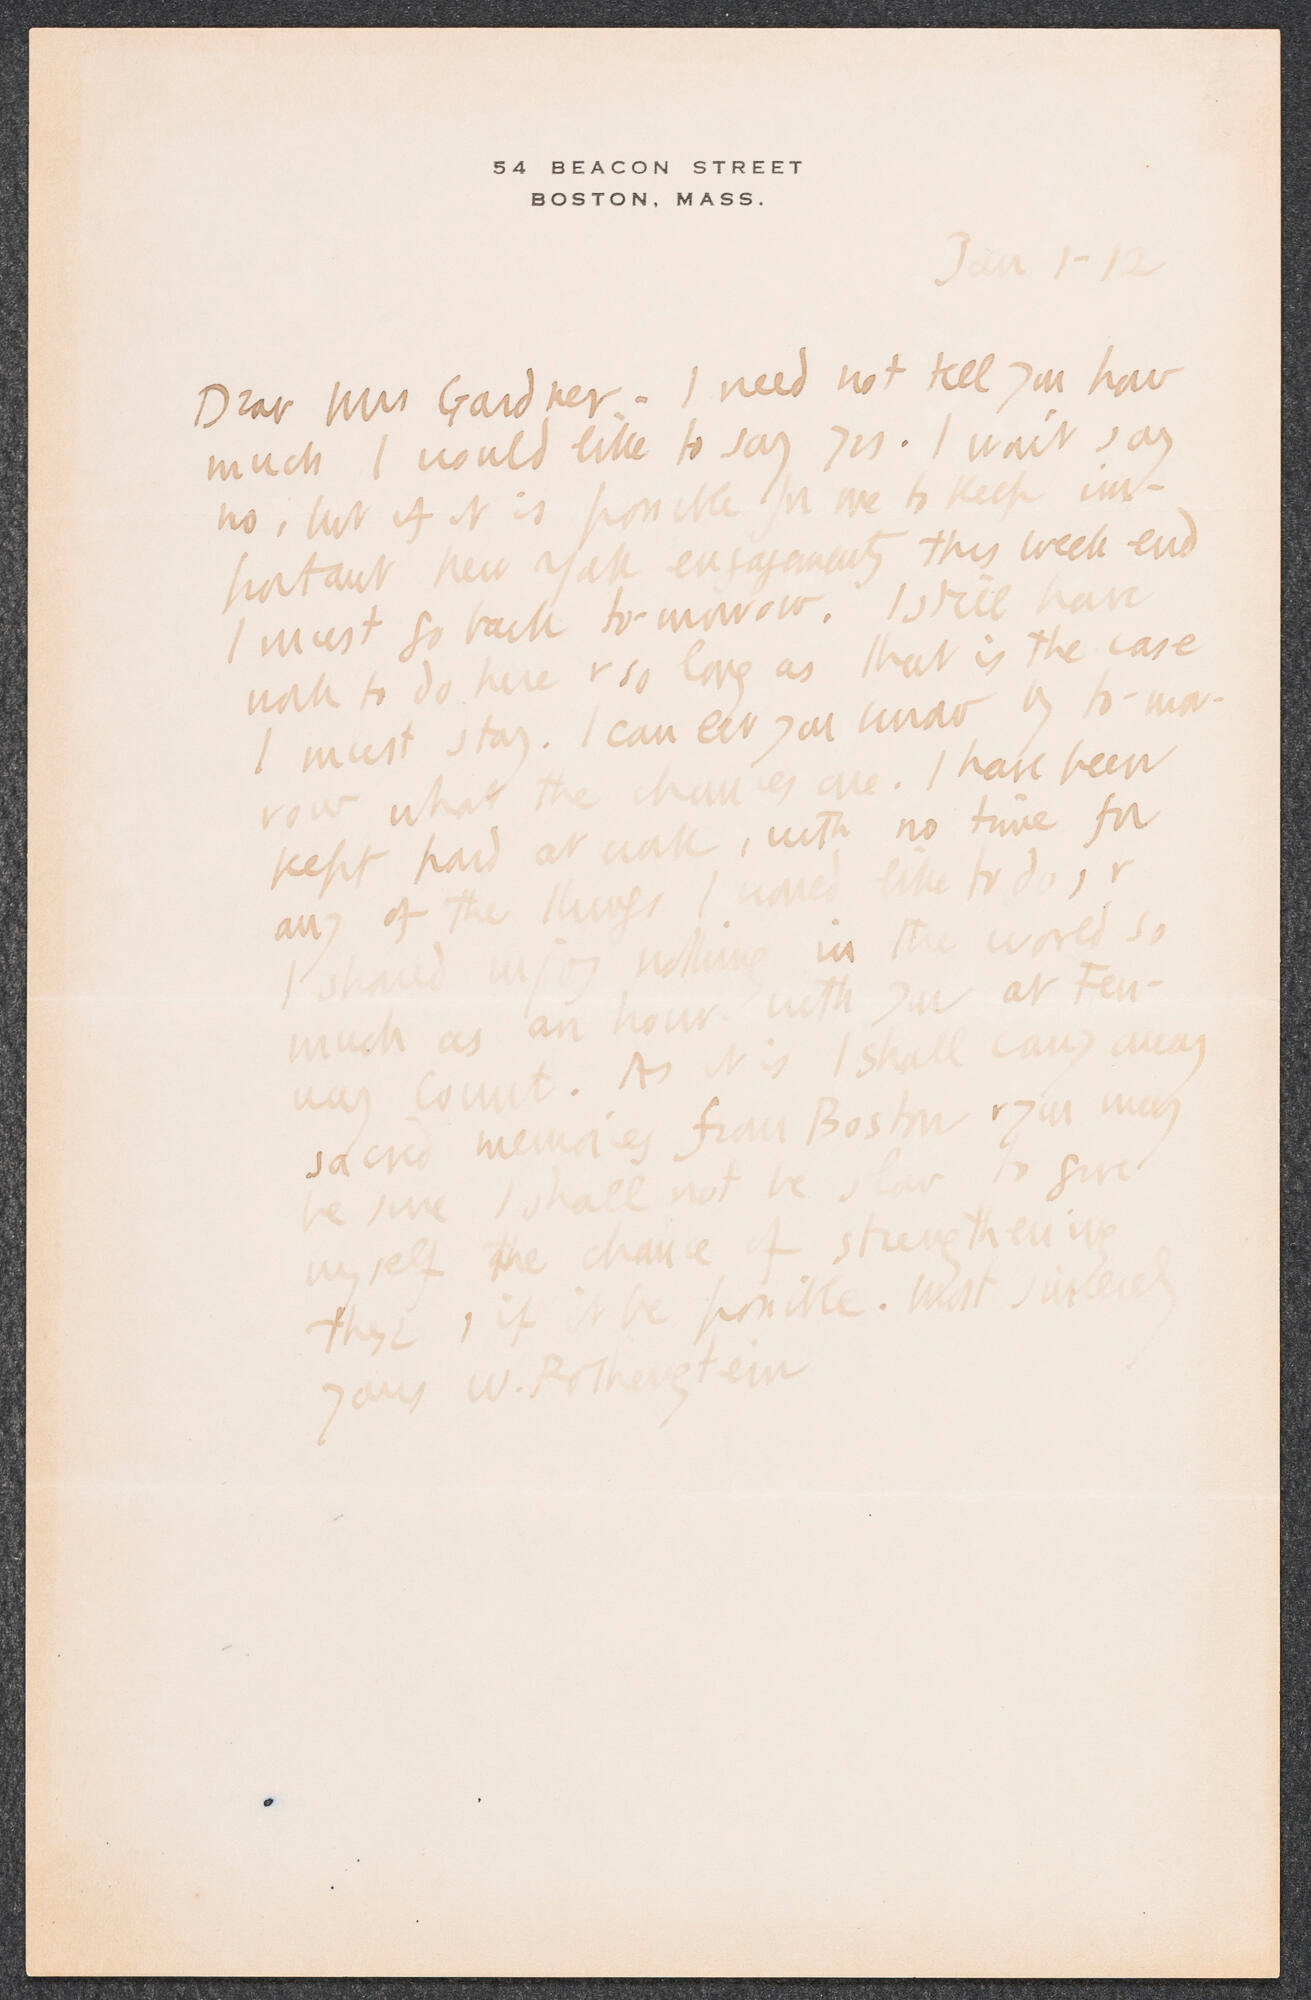 54 BEACON STREET
BOSTON, MASS.
Jan 1-12
Dear Mrs Gardner - I need not tell you how
much I would like to say yes. I won't say
no, but if it is possible for me to keep im-
portant New York engagements this week end
I must go back to-morrow. I still have
work to do here & so long as that is the case
I must stay. I can let you know by to-mor-
row what the chances are. I have been
kept hard at work, with no time for
any of the things I would like to do, &
I should enjoy nothing in the world so
much as an hour with you at Fen-
way Court. As it is I shall carry away
sacred memories from Boston & you may
be sure I shall not be slow to give
myself the chance of strengthening
these, if it be possible. Most sincerely
yours W. Rothenstein